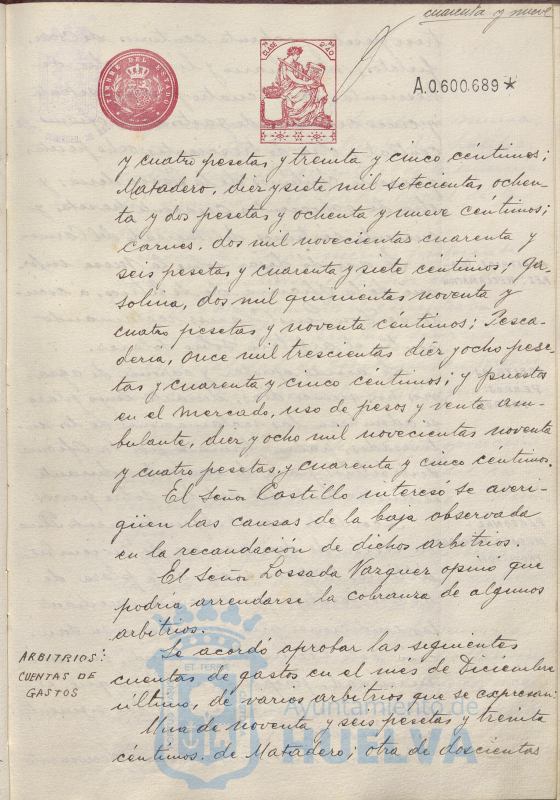 cuarenta y nueve
TIMBRE DEL ESTADO
CLASE
A.0.600.689*
y cuatro pesetas y treinta y cinco céntimos;
Matadero, diez y siete mil setecientas ochen-
ta y dos pesetas y ochenta y nueve céntimos;
carnes, dos mil novecientas cuarenta y
seis pesetas y cuarenta y siete céntimos; ga-
solina, dos mil quinientas noventa y
cuatro pesetas y noventa céntimos; Pesca-
dería, once mil trescientas diez y ocho pese-
tas y cuarenta y cinco céntimos; y puestos
en el mercado, uso de pesos y venta am-
bulante, diez y ocho mil novecientas noventa
y cuatro pesetas, y cuarenta y cinco céntimos.
El Señor Castillo interesó se averi-
güen las causas de la baja observada
en la recaudación de dichos arbitrios.
El Señor Lossada Vazquez opinó que
podría arrendarse la cobranza de algunos
arbitrios.
ARBITRIOS:
CUENTAS DE
GASTOS
Se acordó aprobar las siguientes
cuentas de gastos en el mes de Diciembre
último, de varios arbitrios que se expresan:
Una de noventa y seis pesetas y treinta
céntimos, de Matadero; otra de doscientas
Ayuntamiento de
HUELVA